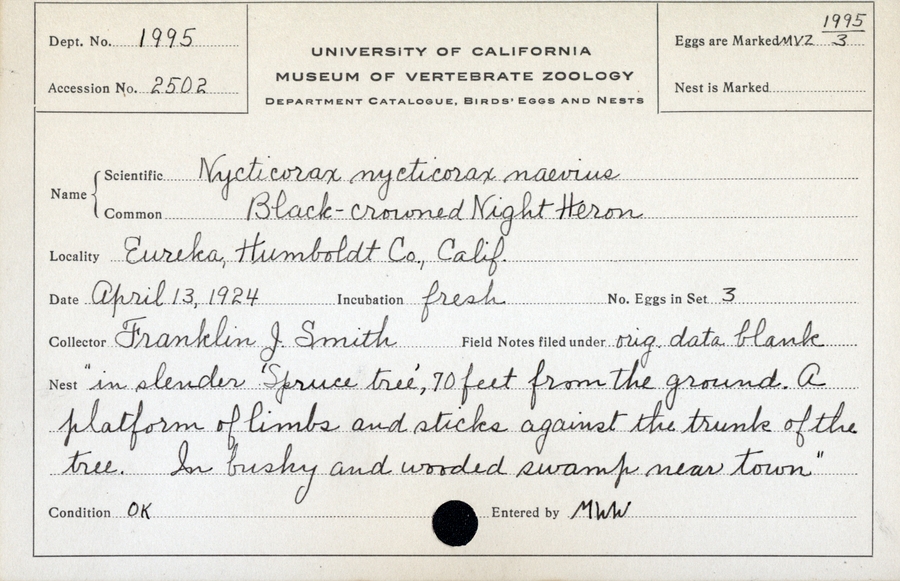 Dept. No. 1995
Accession No. 2502
UNIVERSITY OF CALIFORNIA
MUSEUM OF VERTEBRATE ZOOLOGY
DEPARTMENT CATALOGUE, BIRDS' EGGS AND NESTS
1995
Eggs are Marked MVZ 3
Nest is Marked
Name
Scientific Nycticorax nycticorax naevius
Common Black-crowned Night Heron
Locality Eureka, Humboldt Co., Calif.
Date April 13, 1924 Incubation fresh No. Eggs in Set 3
Collector Franklin J. Smith Field Notes filed under orig. data blank
Nest "in slender 'Spruce tree', 70 feet from the ground. A
platform of limbs and sticks against the trunk of the
tree. In bushy and wooded swamp near town"
Condition OK Entered by MWW